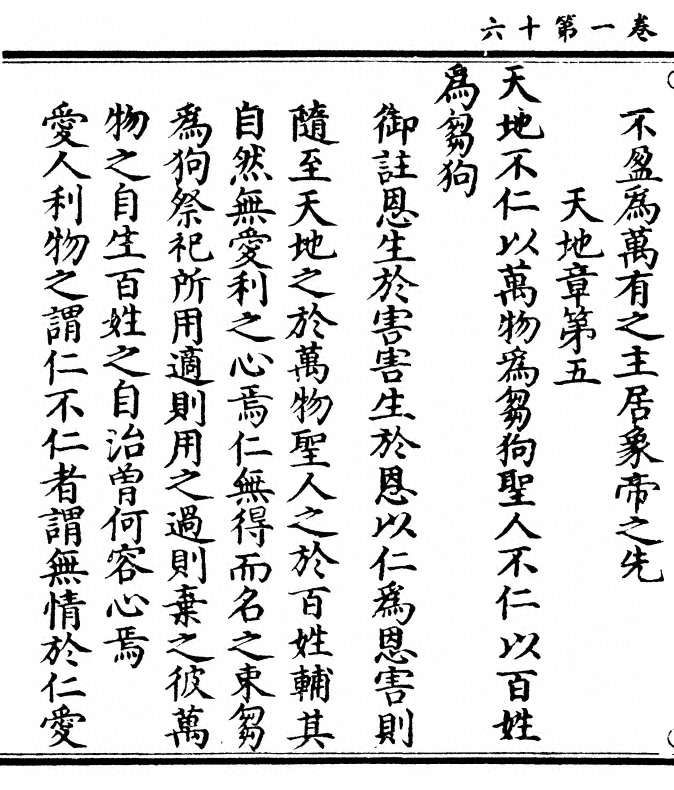 卷一第十六
不盈為萬有之主居象帝之先
天地章第五
天地不仁以萬物為芻狗聖人不仁以百姓
為芻狗
御註恩生於害害生於恩以仁為恩害則
隨至天地之於萬物聖人之於百姓輔其
自然無愛利之心焉仁無得而名之束芻
為狗祭祀所用適則用之過則棄之彼萬
物之自生百姓之自治曾何容心焉
愛人利物之謂仁不仁者謂無情於仁愛